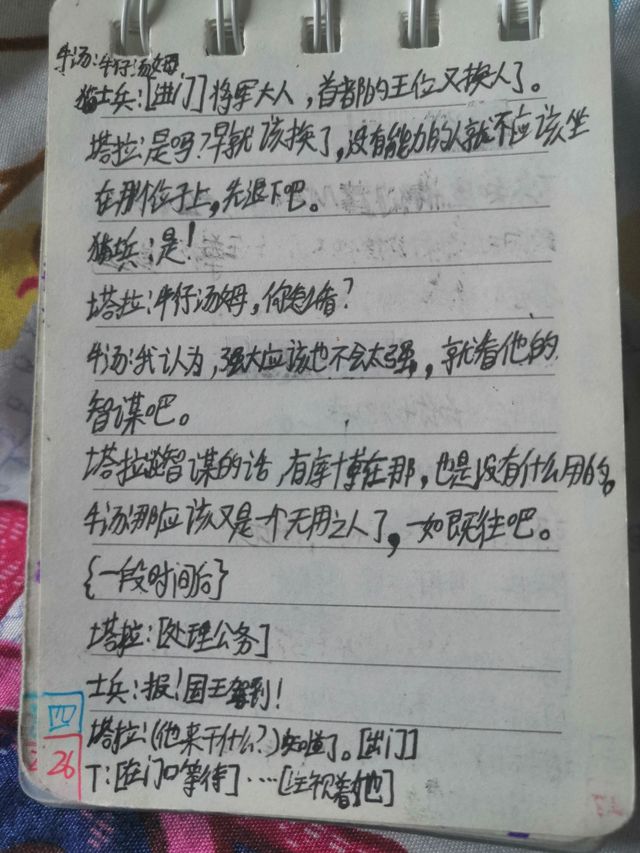 牛汤:牛仔汤姆
猫士兵:[进门]将军大人,首都的王位又换人了。
塔拉:是吗?早就该换了,没有能力的人就不应该坐
在那个位子上,先退下吧。
猫兵:是!
塔拉:牛仔汤姆,你怎么看?
牛汤:我认为,强大应该也不会太强,就看他的
智谋吧。
塔拉:智谋的话,有库博在那,也是没有什么用的。
牛汤:那应该又是一个无用之人了,一如既往吧。
{一段时间后}
塔拉:[处理公务]
士兵:报!国王驾到!
塔拉:(他来干什么?)知道了。[出门]
T:[在门口等待]····[注视着她]
四
26